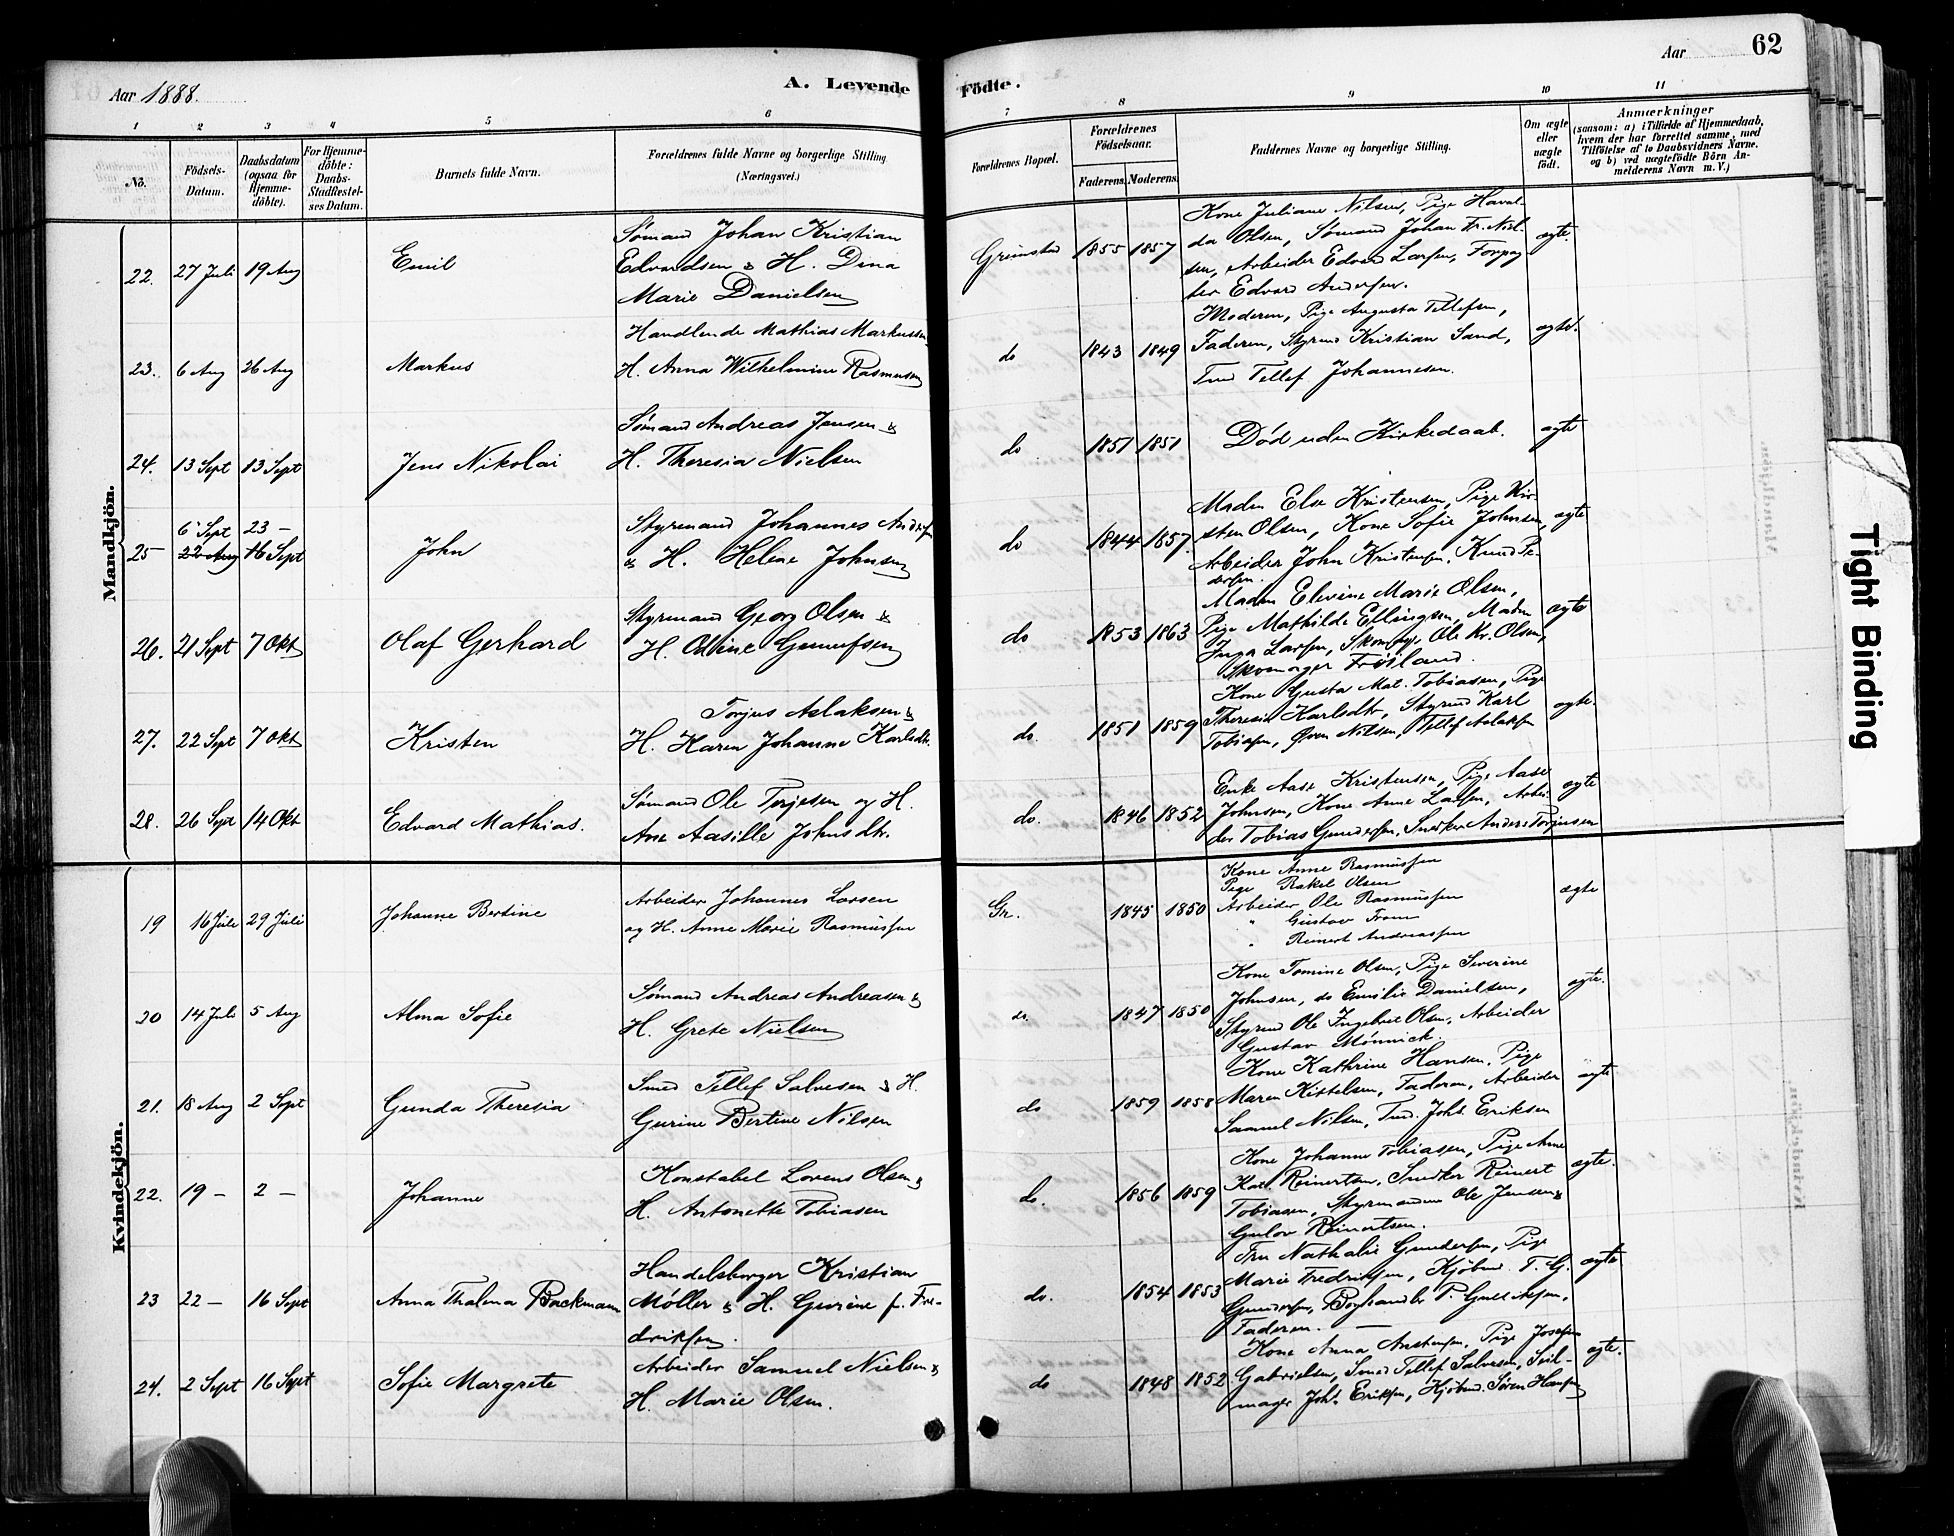 Aar 1888.
A. Levende
Födte.
Aar
62
1
2
3
4
5
6
7
8
9
10
11
No.
Födsels-
Datum.
Daabsdatum
(ogsaa for
Hjemme-
döbte).
For Hjemme-
döbte:
Daabs-
Stadfæstel-
ses Datum.
Barnets fulde Navn.
Forældrenes fulde Navne og borgerlige Stilling
(Næringsvei.)
Forældrenes Bopæl.
Forældrenes
Födselsaar.
Faderens.
Moderens.
Faddernes Navne og borgerlige Stilling.
Om ægte
eller
uægte
födt.
Anmærkninger
(saasom: a) i Tilfælde af Hjemmedaab,
hvem der har forrettet samme, med
Tilföielse af to Daabsvidners Navne.
og b) ved uægtefödte Börn An-
melderens Navn m. V.)
Mandkjön.
22. 27 Juli 19 Aug
Emil
Sømand Johan Kristian
Edvardsen & H. Dina
Marie Danielsen
Grimstad 1855 1857
Kone Juliane Nilsen, Pige Haval-
da Olsen, Sømand Johan Fr. Niel-
sen, Arbeider Edvard Larsen,
Edvard Andersen.
ægte.
23. 6 Aug 26 Aug
Markus
Handlende Mathias Markussen
H. Anna Wilhelmine Rasmusen
do 1843 1849
Moderen, Pige Augusta Tellefsen,
Faderen, Styrmd Kristian Sand,
Tellef Johannesen.
ægte.
24. 13 Sept 13 Sept
Jens Nikolai
Sømand Andreas Jensen &
H. Theresia Nielsen
do 1851 1851
Død uden Kirkedaab.
ægte
25 6 Sept 23 -
22 Aug 16 Sept
John
Styrmand Johannes Andersen
& H. Helene Johnsen
do 1844 1857.
Madm Else Kristensen, Pige Kir-
sten Olsen, Kone Sofie Johnsen,
Arbeider John Kristensen, Knud Pe-
dersen.
ægte
26. 21 Sept 7 Okt
Olaf Gerhard
Styrmand Georg Olsen &
H. Odine Gunnufsen
do 1853 1863
Madm Elevine Marie Olsen,
Pige Mathilde Ellingsen, Madm
Inga Larsen, Skomag. Ole Kr. Olsen,
Skomager Frøisland.
ægte
27. 22 Sept 7 Okt
Kristen
Torjus Aslaksen &
H. Karen Johanne Karlsdtr.
do. 1851 1859
Kone Gusta Mat. Tobiasen, Pige
Theresia Karlsdtr, Styrmd Karl
Tobiasen, Nilsen, Tellef Aslaksen
ægte.
28. 26 Sept 14 Okt
Edvard Mathias.
Sømand Ole Terjesen og H.
Ane Aasille Johnsdtr.
do. 1846 1852
Enke Aase Kristensen, Pige Aase
Johnsen, Kone Anne Larsen, Arbei-
der Tobias Gundersen, Snedker Anders Torjussen
ægte
Kvindekjön.
19 16 Juli 29 Juli
Johanne Bertine
Arbeider Johannes Larsen
og H. Anne Marie Rasmussen
Gr. 1845 1850
Kone Anne Rasmussen
Pige Rakel Olsen
Arbeider Ole Rasmussen
" Gustav From
" Reinert Andreassen
ægte
20 14 Juli 5 Aug
Alma Sofie
Sømand Andreas Andreasen &
H. Grete Nielsen
do. 1847 1850
Kone Tomine Olsen, Pige Severine
Johnsen, do Emilie Danielsen,
Styrmd Ole Ingebret Olsen, Arbeider
Gustav Mønnick.
ægte.
21. 18 Aug 2 Sept
Gunda Theresia
Smed Tellef Salvesen & H.
Gurine Bertine Nilsen
do 1859 1858
Kone Kathrine Hansen, Pige
Maren Kittelsen, Faderen, Arbeider
Samuel Nilsen, Johs. Eriksen
ægte
22. 19 - 2 -
Johanne
Konstabel Lorens Olsen &
H. Antonette Tobiasen
do. 1856 1859
Kone Johanne Tobiasen, Pige Anne
Kat. Reinertsen, Snedker Reinert
Tobiasen, Styrmændene Ole Jensen &
Gulov Reinertsen.
ægte.
23 22 - 16 Sept
Anna Thalena Backmann
Handelsborger Kristian
Møller & H. Gurine f. Fre-
driksen.
do. 1854 1853
Fru Nathalie Gundersen, Pige
Marie Fredriksen, Kjøbmd T. G.
Gundersen, Boghandler P.
Faderen.
ægte
24. 2 Sept 16 Sept
Sofie Margrete
Arbeider Samuel Nielsen &
H. Marie Olsen.
do 1848 1852
Kone Anna Anstensen, Pige Josefine
Gabrielsen, Smed Tellef Salvesen, Seil-
mager Johs. Eriksen, Kjøbmd. Søren Hansen
ægte.
Tight Binding